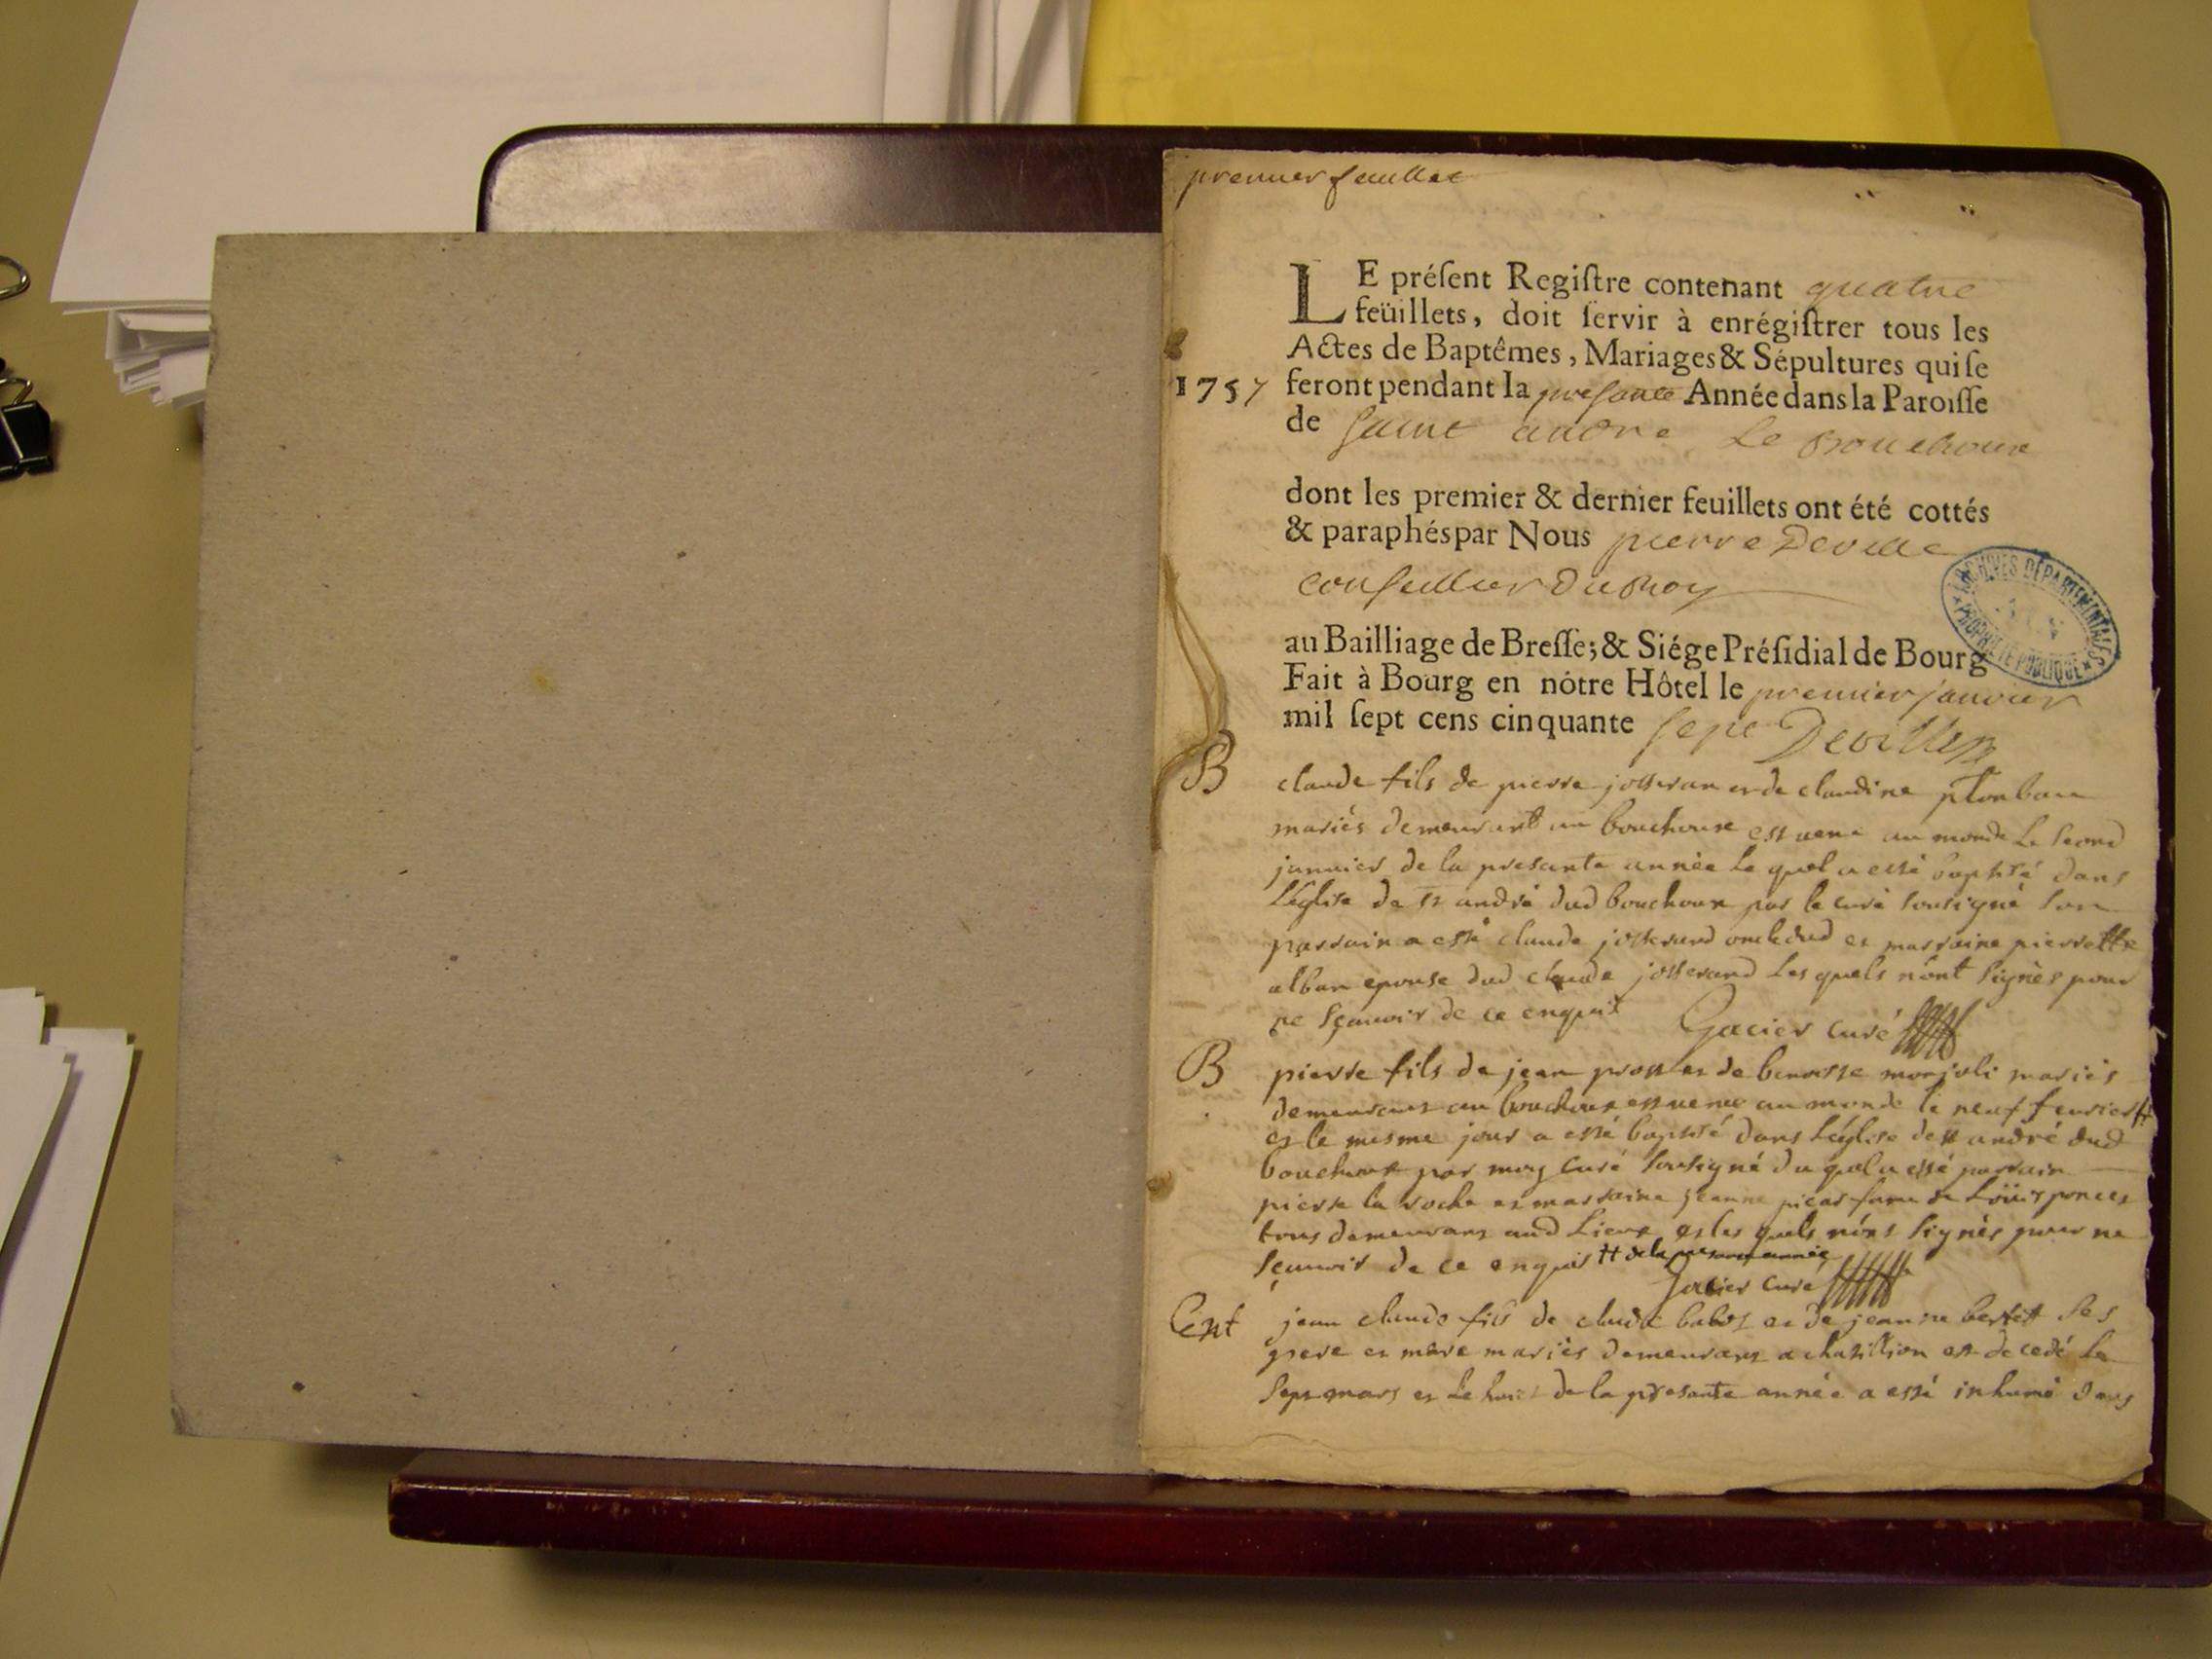 premier feuillet
LE préſent Regiſtre contenant quatre
feüillets, doit ſervir à enrégiſtrer tous les
Actes de Baptêmes, Mariages & Sépultures qui ſe
1757 feront pendant la presante Année dans la Paroiſſe
de saint andre Le Bouchoux
dont les premier & dernier feuillets ont été cottés
& paraphés par Nous pierre Deville
conseillier Du Roy
au Bailliage de Breſſe; & Siége Préſidial de Bourg
ARCHIVES DÉPARTEMENTALES
PROPRIÉTÉ PUBLIQUE
Fait à Bourg en nôtre Hôtel le premier janvier
mil ſept cens cinquante sept Deville
B claude fils de pierre josseran et de claudine
mariés demeurant au bouchoux est venu au monde Le second
janvier de la presante année le quel a esté baptisé dans
L'église de st andré dud bouchoux par le curé sousigné son
parrain a esté claude josserand oncle dud et marraine pierrette
alban epouse dud claude josserand Les quels n'ont signés pour
ne sçauoir de ce enquit Gacier curé
B pierre fils de jean et de benoisse monjoli mariés
demeurans au bouchoux est venu au monde le neuf feurier #
et le mesme jour a esté baptisé dans L'église de st andré dud
bouchoux par moy curé sousigné du quel a esté parrain
pierre la roche et marraine jeanne picar fame de Loüis
tous demeurans aud Lieux et les quels n'ons signés pour ne
sçauoir de ce enquis # de la presente année
Gacier curé
Ent jean claude fils de claude et de jeanne ses
pere et mere mariés demeurans a chatillion est decedé Le
sept mars et Le huit de la presante année a esté inhumé dans